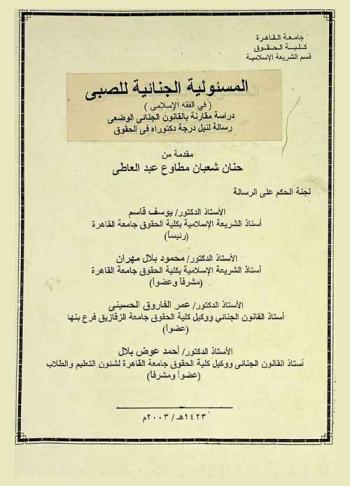 جامعة القاهرة
كلية الحقوق
قسم الشريعة الإسلامية
المسئولية الجنائية للصبى
( في الفقه الإسلامى )
دراسة مقارنة بالقانون الجنائى الوضعى
رسالة لنيل درجة دكتوراه فى الحقوق
مقدمة من
حنان شعبان مطاوع عبد العاطى
لجنة الحكم على الرسالة
الأستاذ الدكتور/ يوسف قاسم
أستاذ الشريعة الإسلامية بكلية الحقوق جامعة القاهرة
(رئيساً)
الأستاذ الدكتور/ محمود بلال مهران
أستاذ الشريعة الإسلامية بكلية الحقوق جامعة القاهرة
(مشرفاً وعضواً)
الأستاذ الدكتور/ عمر الفاروق الحسينى
أستاذ القانون الجنائي ووكيل كلية الحقوق جامعة الزقازيق فرع بنها
(عضواً)
الأستاذ الدكتور/ أحمد عوض بلال
أستاذ القانون الجنائى ووكيل كلية الحقوق جامعة القاهرة لشئون التعليم والطلاب
(عضواً ومشرفاً)
١٤٢٣هـ / ٢٠٠٣م